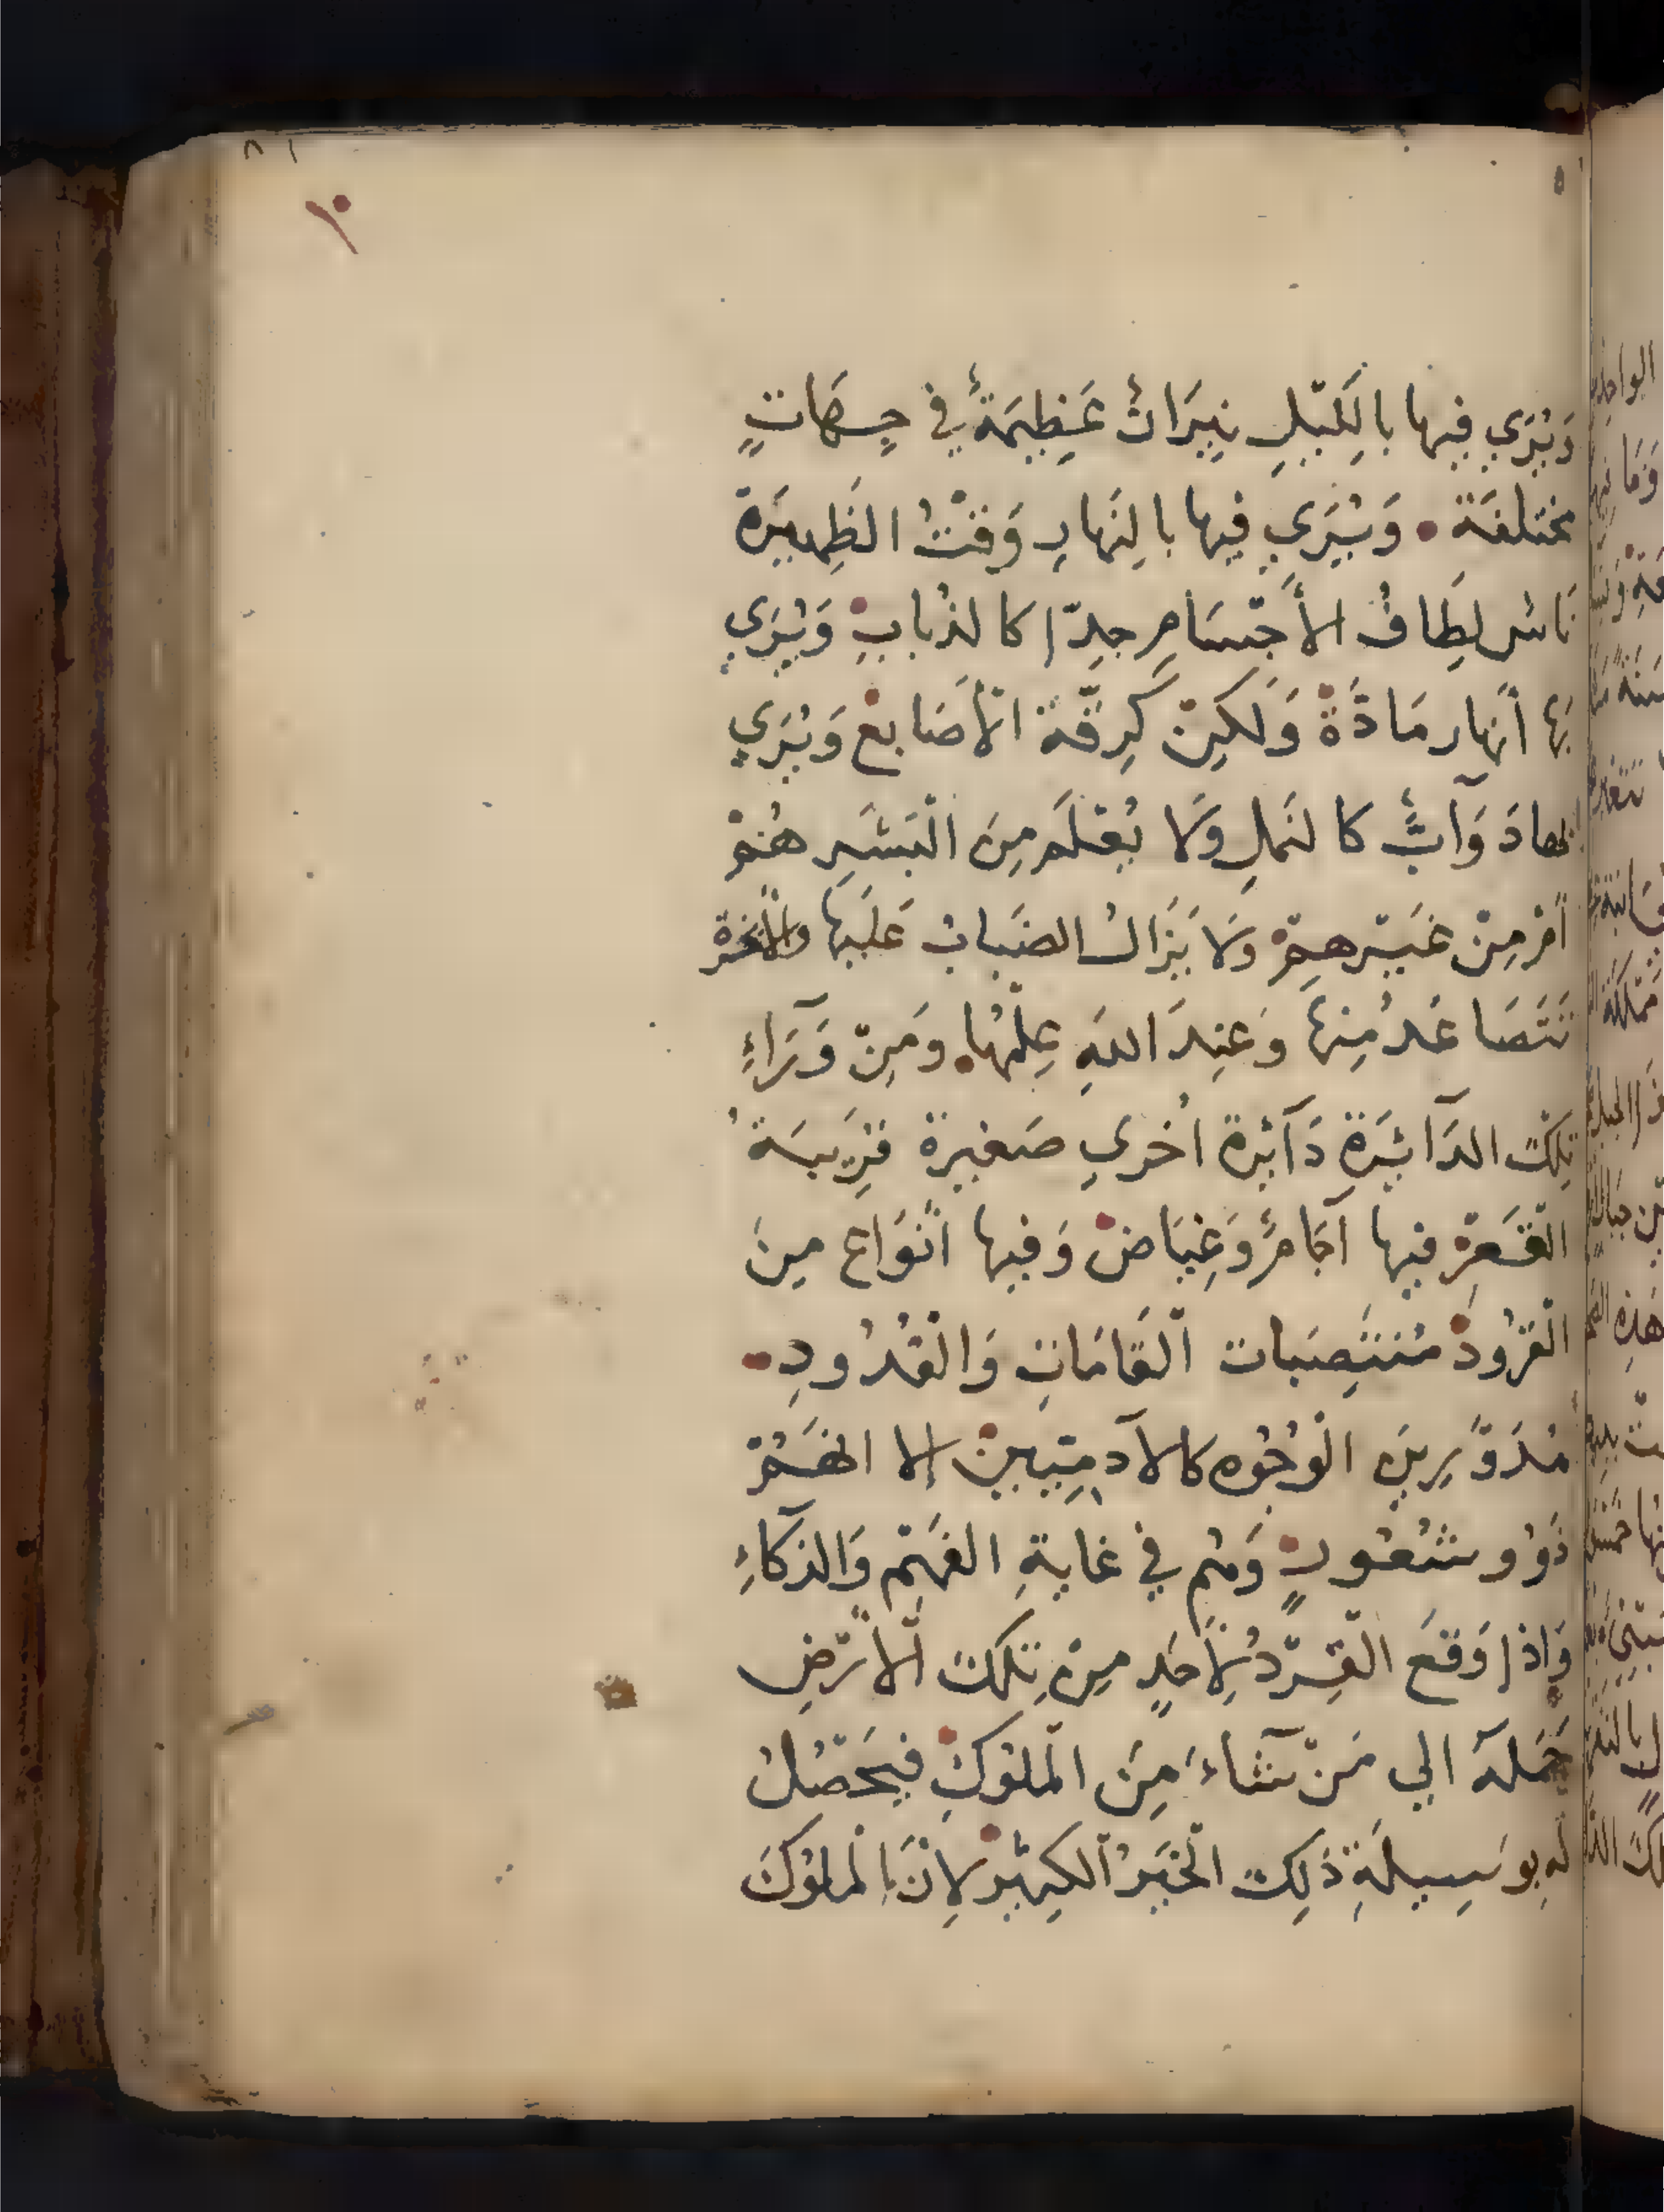 ١٠
وَيُرَي فيها بالَليّلِ نِيرَانٌ عَظِيمَةٌ في جِهَاتٍ
مختلفَة • وَيُرَي فيها بالنَهارِ وَقتُ الظَهِيَرة
نَاسٌ لِطَافُ الأَجّسَامِ جدّا كالذُبابِ وَيُرَي
بَها أنهار مَادَّةٌ وَلكِنّ كَرِقّة الأصَابع وَيُرَي
بها دَوَآبٌّ كالنَملِ وَلا يُعْلَم مِنَ الْبَشَرِ هُمْ
أمْ مِنْ غَيّرهِمْ وَلا يَزَالُ الضَبابُ عَلَيها والأبخرة
تَتَصَاعَدُ مِنهَا وَعِندَ اللهِ عِلّمُها • وَمِنّ وَرَآءِ
تِلكَ الدَآئِرَةِ دَآئِرة اُخري صَغيرة قَرِيبَةُ
الْقَعْرِ فيها آجَامٌ وَغِيَاضْ وَفيها أنْوَاع مِنَ
الْقُرُودْ مُنتَصِبات الْقَامَاتِ وَالْقُدُودِ •
مُدَوَّرِينَ الْوُجُوه كالآدمِيّينْ إلا انهُمْ
ذَوُو شُعُورٍ وَهُم في غَايةِ الفَهَمِ وَالذكآءِ
وَاِذا وَقَعَ الْقِرّدُ لِأحَدٍ مِنْ تِلكَ الْأرّضِ
حَمَلَهُ الي مَنّ شَآءَ مِنَ الْمُلوُكِ فيَحّصُلُ
لَهِ بوَسِيلَةِ ذَلِكَ الْخَيَرُ الْكثِيرْ لِانَّ الْمُلوُكَ